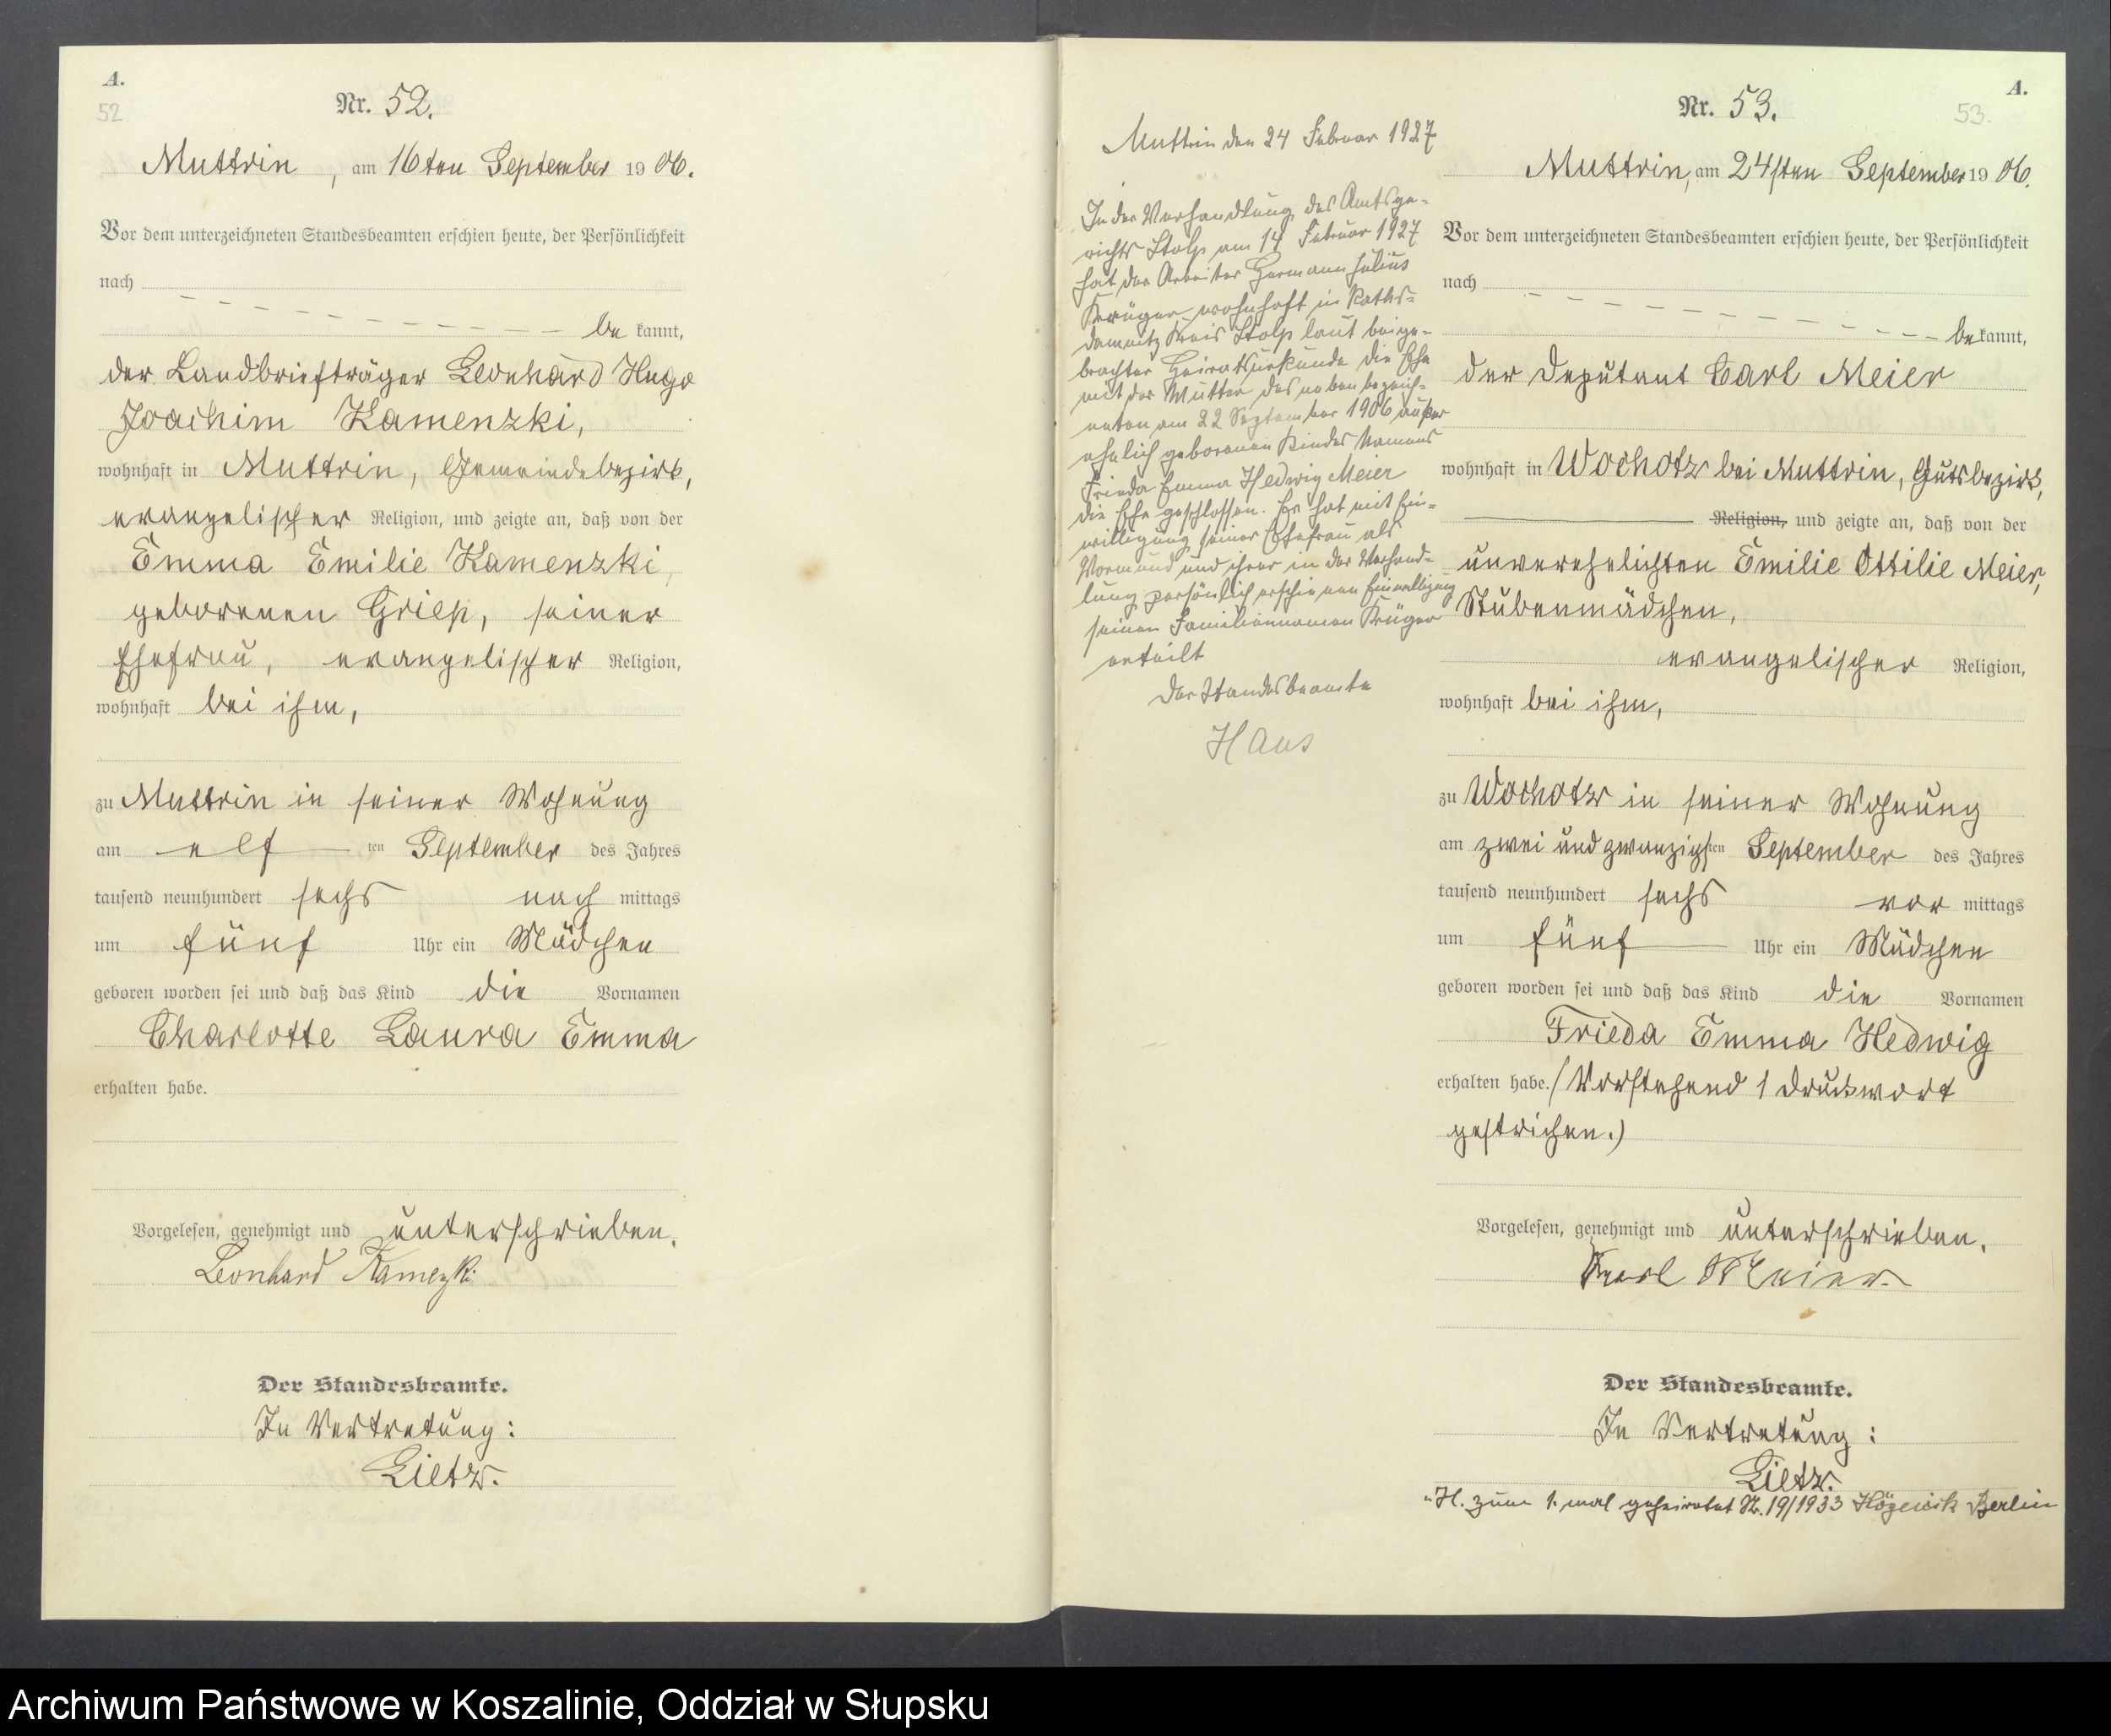 A.
52
Nr. 52.
Muttrin, am 16ten September 19 06.
Vor dem unterzeichneten Standesbeamten erschien heute, der Persönlichkeit
nach
be kannt,
der Landbriefträger Leonhard Hugo
Joachim Kamenzki,
wohnhaft in Muttrin, Gemeindebezirk,
evangelischer Religion, und zeigte an, daß von der
Emma Emilie Kamenzki,
geborenen Griep, seiner
Ehefrau, evangelischer Religion,
wohnhaft bei ihm,
zu Muttrin in seiner Wohnung
am elf ten September des Jahres
tausend neunhundert sechs nach mittags
um fünf Uhr ein Mädchen
geboren worden sei und daß das Kind die Vornamen
Charlotte Laura Emma
erhalten habe.
Vorgelesen, genehmigt und unterschrieben.
Leonhard Kamenzki
Der Standesbeamte.
In Vertretung:
Lietz.
Muttrin den 24 Februar 1927
In der Verhandlung des Amtsge-
richts Stolp am 14 Februar 1927
hat der Arbeiter Hermann Julius
Krüger wohnhaft in Raths-
damnitz Kreis Stolp laut beige-
brachter Heiratsurkunde die Ehe
mit der Mutter des neben bezeich-
neten am 22 September 1906 außer
ehelich geborenen Kindes Namens
Frieda Emma Hedwig Meier
die Ehe geschlossen. Er hat mit Ein-
willigung seiner Ehefrau als
Vormund und ihrer in der Verhand-
lung persönlich erschienen Einwilligung
seinen Familiennamen Krüger
erteilt
Der Standesbeamte
Haus
A.
53.
Nr. 53.
Muttrin, am 24sten September 19 06.
Vor dem unterzeichneten Standesbeamten erschien heute, der Persönlichkeit
nach
be kannt,
der Deputant Carl Meier
wohnhaft in Wochotz bei Muttrin, Gutsbezirk,
Religion, und zeigte an, daß von der
unverehelichten Emilie Ottilie Meier,
Stubenmädchen,
evangelischer Religion,
wohnhaft bei ihm,
zu Wochotz in seiner Wohnung
am zwei und zwanzigsten September des Jahres
tausend neunhundert sechs vor mittags
um fünf Uhr ein Mädchen
geboren worden sei und daß das Kind die Vornamen
Frieda Emma Hedwig
erhalten habe. (Vorstehend 1 Druckwort
gestrichen.)
Vorgelesen, genehmigt und unterschrieben.
Karl Meier.
Der Standesbeamte.
In Vertretung:
Lietz.
H. zum 1. mal geheiratet Nr. 19/1933 Berlin
Archiwum Państwowe w Koszalinie, Oddział w Słupsku